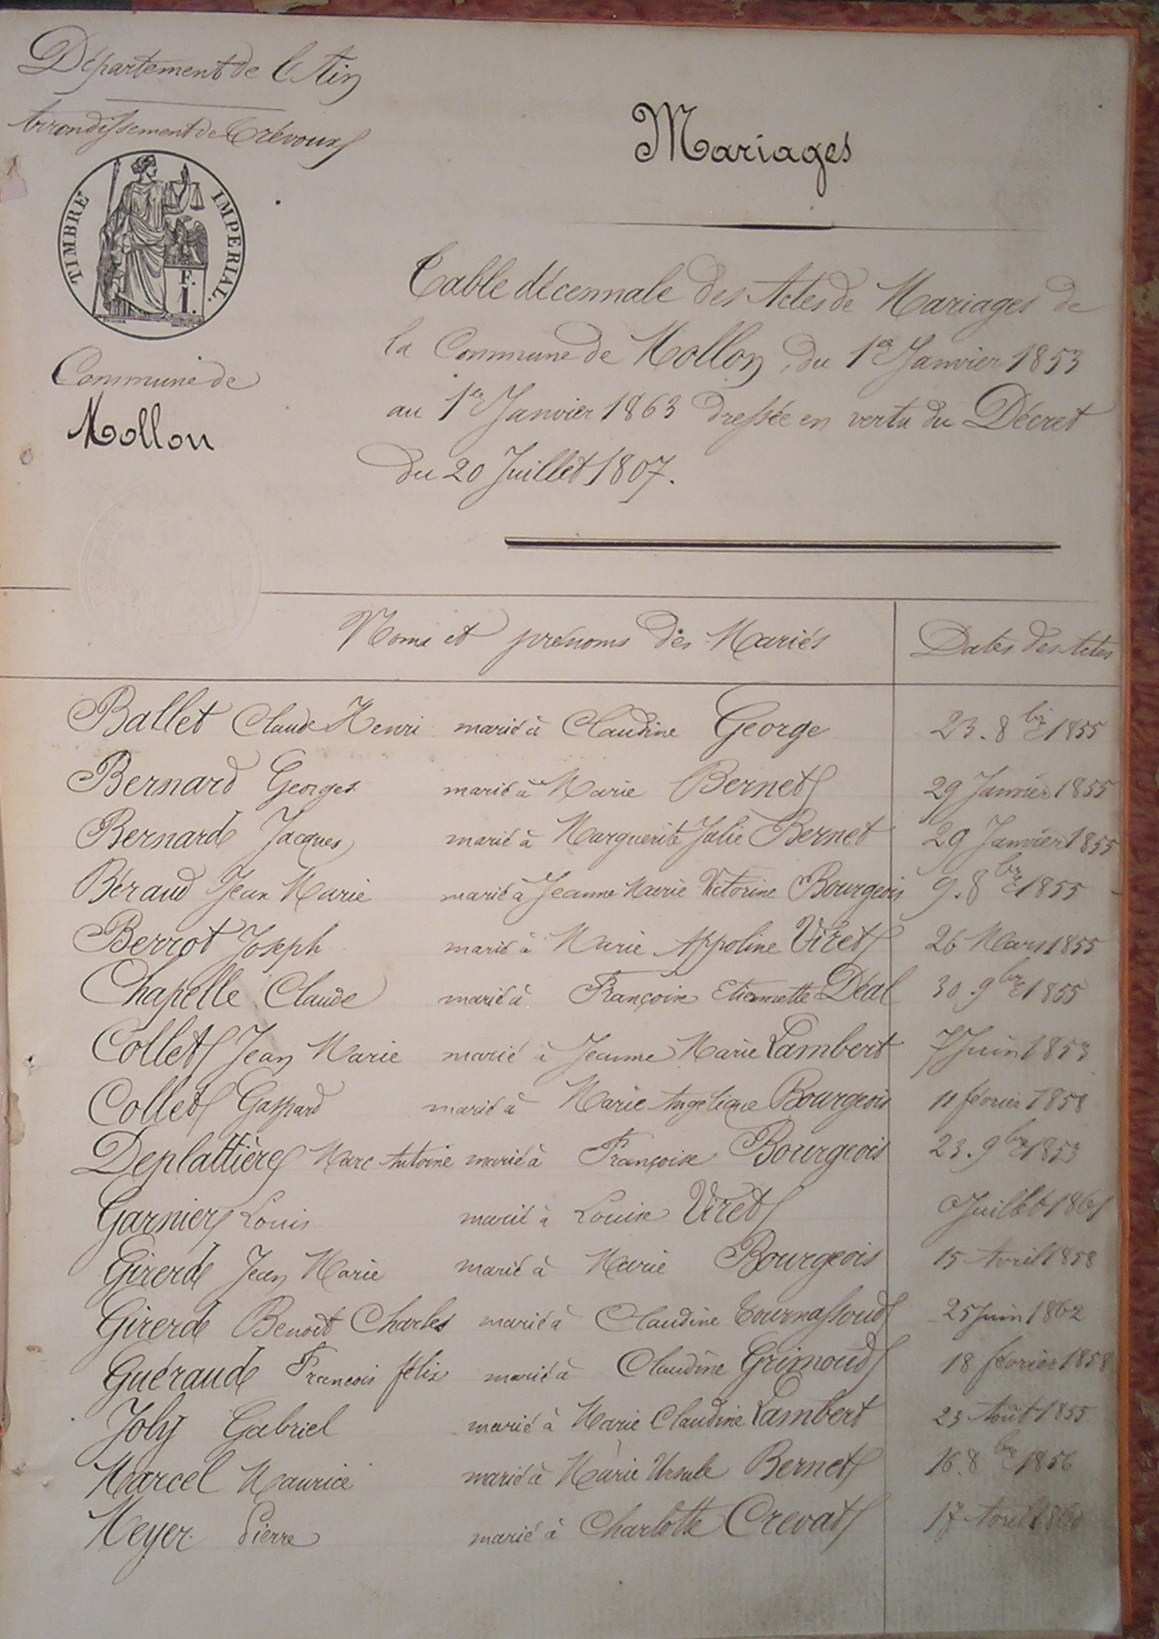 Département de l'Ain
Arrondissement de Trévoux
TIMBRE IMPERIAL.
F.
1.
Commune de
Mollon
Mariages
Table décennale des Actes de Mariages de
la Commune de Mollon, du 1er Janvier 1853
au 1er Janvier 1863 dressée en vertu du Décret
du 20 Juillet 1807.
Noms et prénoms des Mariés Dates des Actes
Ballet Claude Henri marié à Claudine George 23. 8bre 1855
Bernard Georges marié à Marie Bernet 29 Janvier 1855
Bernard Jacques marié à Marguerite Julie Bernet 29 Janvier 1855
Béraud Jean Marie marié à Jeanne Marie Victorine Bourgeois 9. 8bre 1855
Berrot Joseph marié à Marie Appoline Viret 26 Mars 1855
Chapelle Claude marié à Françoise Etiennette Déal 30. 9bre 1855
Collet Jean Marie marié à Jeanne Marie Lambert 7 Juin 1853
Collet Gaspard marié à Marie Angélique Bourgeois 11 février 1858
Deplattière Marc Antoine marié à Françoise Bourgeois 23. 9bre 1853
Garnier Louis marié à Louise Viret Juillet 1861
Girerd Jean Marie marié à Marie Bourgeois 15 Avril 1858
Girerd Benoit Charles marié à Claudine Tournassoud 25 Juin 1862
Gueraud Francois félix marié à Claudine Grimoud 18 février 1858
Joly Gabriel marié à Marie Claudine Lambert 23 Août 1855
Marcel Maurice marié à Marie Ursule Bernet 16. 8bre 1856
Meyer Pierre marié à Charlotte Crevat 17 Avril